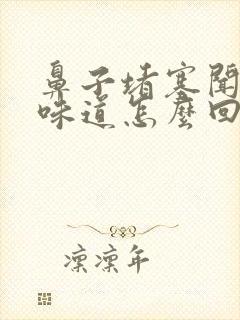 鼻子堵塞聞
味道怎麼回
凜凜年